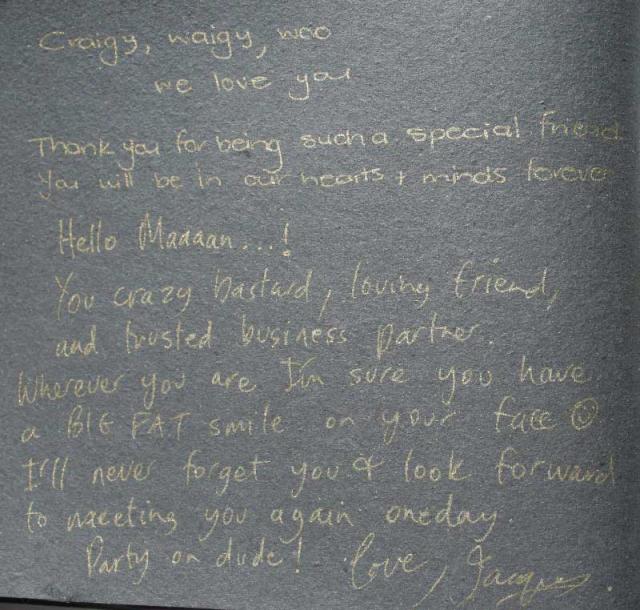 Craigy, waigy, woo
we love you
Thank you for being such a special friend
You will be in our hearts + minds forever
Hello Maaaan...!
You crazy bastard, loving friend,
and trusted business partner.
Wherever you are I'm sure you have
a BIG FAT smile on your face ☺
I'll never forget you & look forward
to meeting you again oneday.
Party on dude! love, Jacques